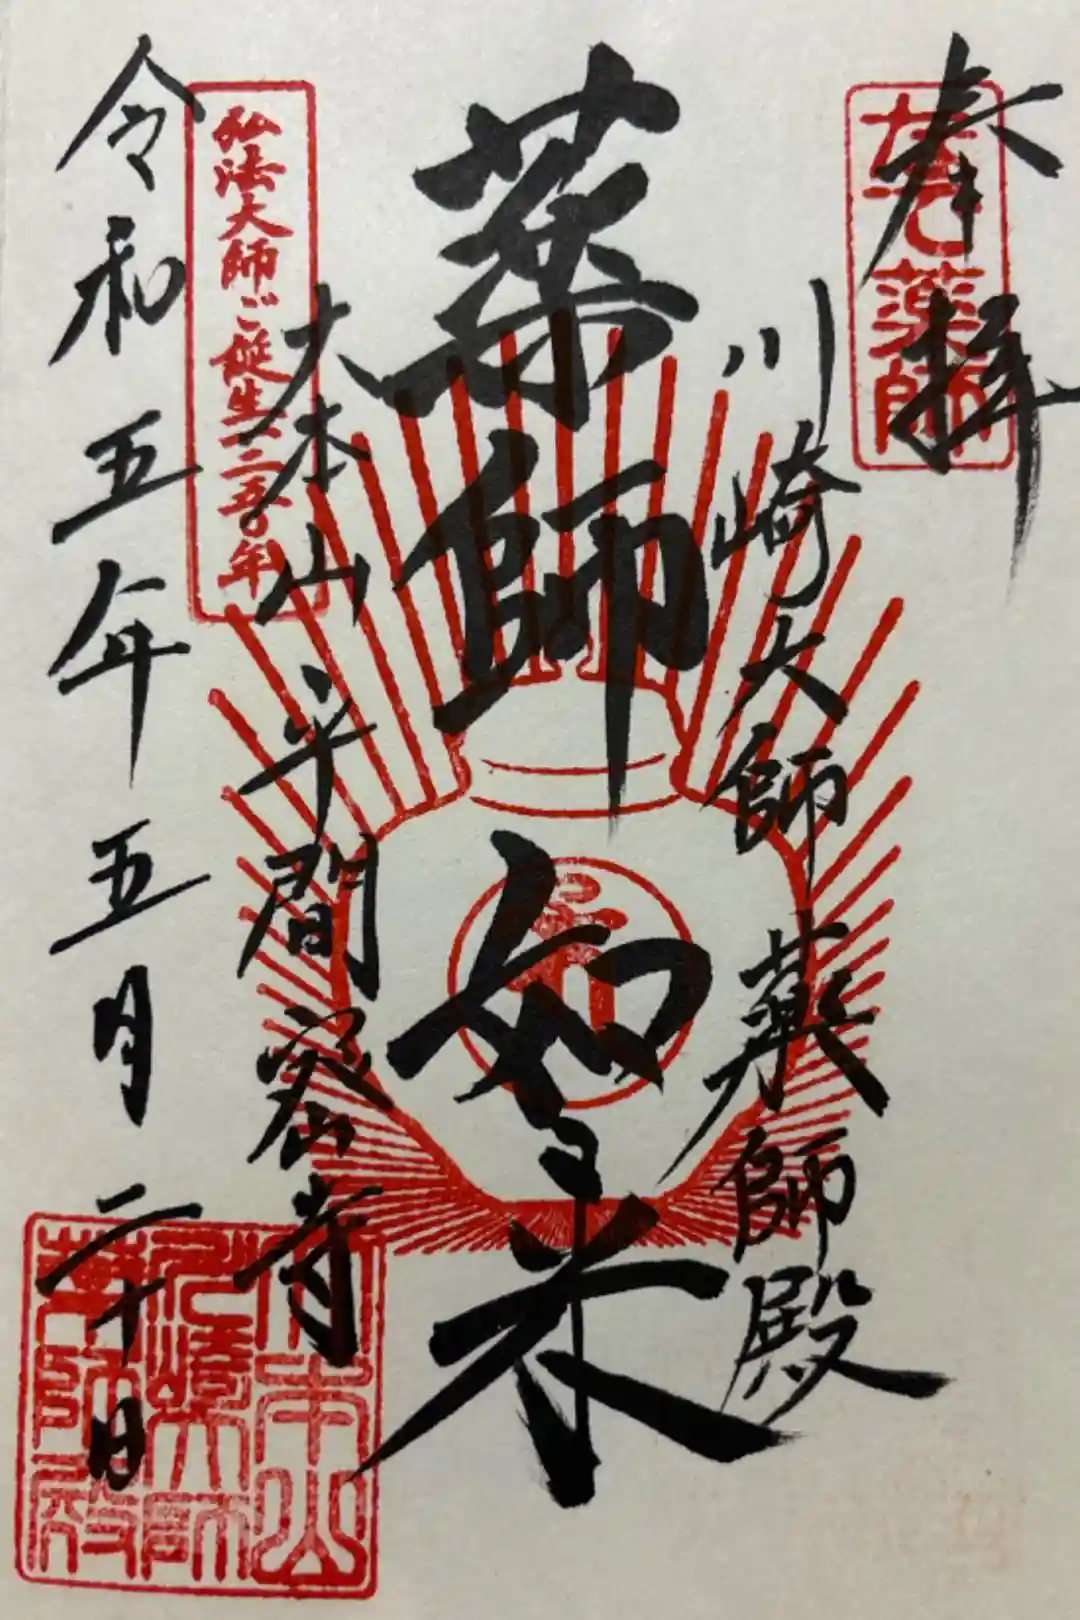 奉拝
川崎大師薬師殿
薬師如来
大本山平間密寺
弘法大師ご誕生一二五〇年
令和五年五月二十日
大本山
川崎大師
薬師殿